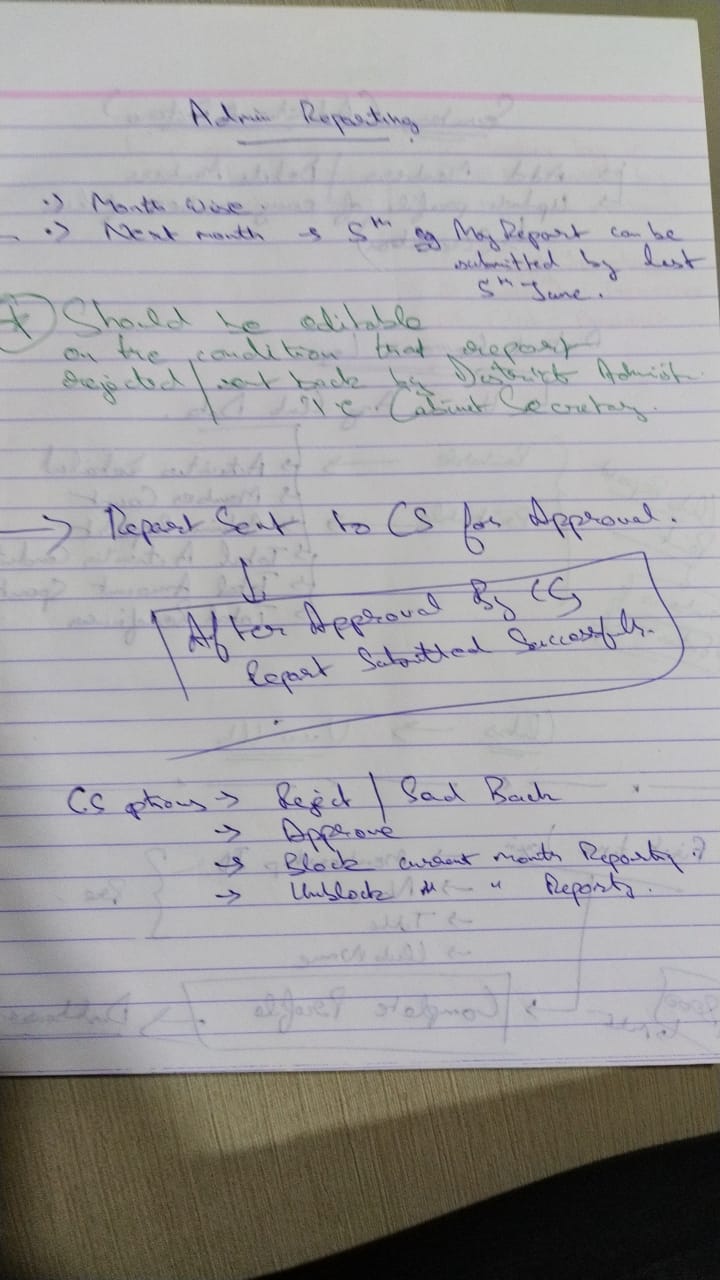 Admin Reporting
.) Month Wise.
.) Next month → 5th eg May Report can be
submitted by last
5th June.
* Should be editable
on the condition that report
rejected / sent back by District Admist.
i.e Cabinet Secretary.
→ Report Sent to CS for Approval.
↓
After Approval By CS,
Report Submitted Successfully.
CS ptions → Reject / Sad Back
→ Approve
→ Block current month Reporting.
→ Unblock " " Reporting.